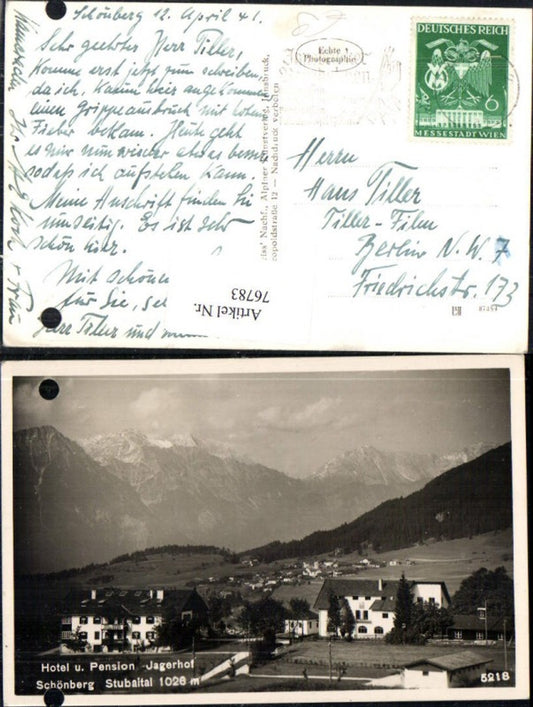 Schönberg 12. April 41.
Sehr geehrter Herr Tiller,
Komme erst jetzt zum schreiben
da ich, kaum hier angekommen
einen Grippeausbruch mit hohem
Fieber bekam. Heute geht
es mir nun wieder etwas besser
sodaß ich aufstehen kann.
Meine Anschrift finden Sie
umseitig. Es ist sehr
schön hier.
Mit schönen
für Sie,
Herr Tiller und
Echte
Photographie
Nachf., Alpiner Kunstverlag, Innsbruck,
opoldstraße 12 — Nachdruck verboten
Artikel Nr.
76783
DEUTSCHES REICH
6
MESSESTADT WIEN
Herrn
Hans Tiller
Tiller-Film
Berlin N.W. 7
Friedrichstr. 173
Hotel u. Pension Jagerhof
Schönberg Stubaital 1026 m
5218